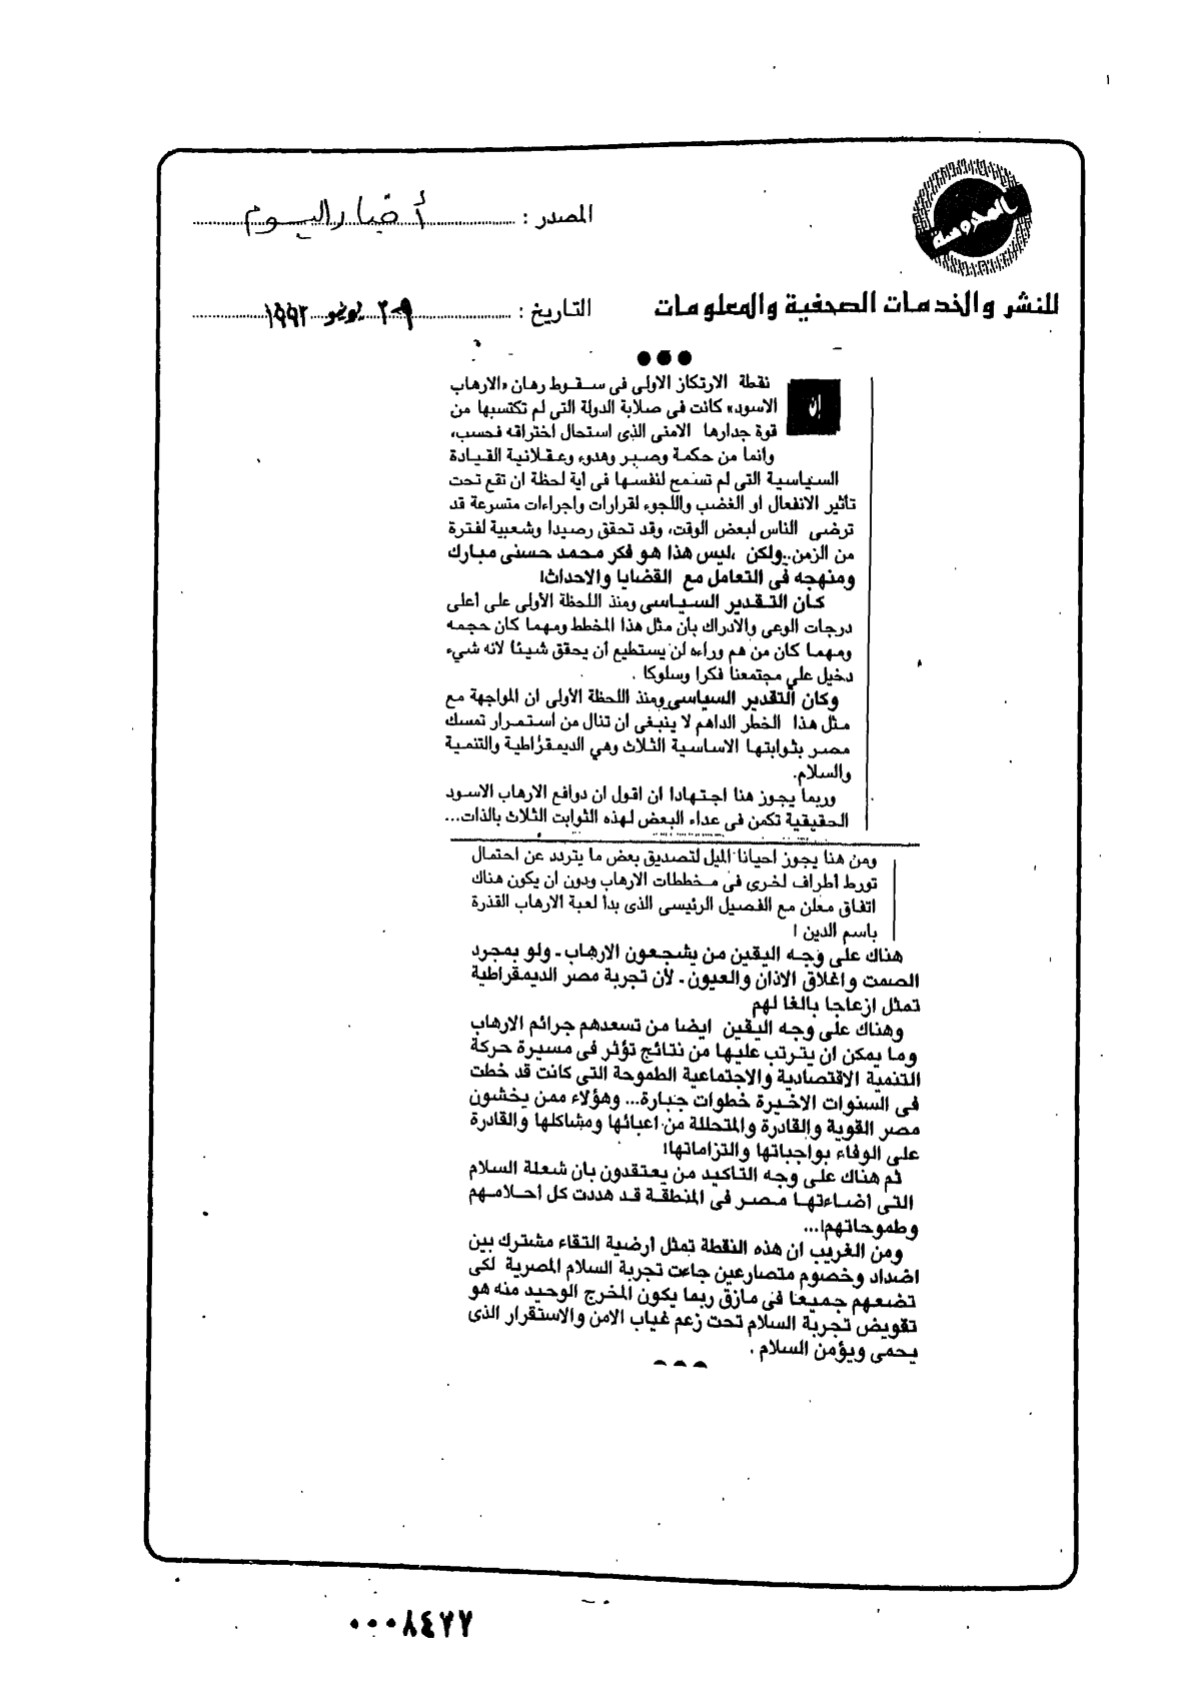 ١
المحروسة
المصدر : أخبار اليوم
للنشر والخدمات الصحفية والمعلومات
التاريخ : يونيو ١٩٩٣
إن
نقطة الارتكاز الاولى فى سقوط رهان «الارهاب
الاسود» كانت فى صلابة الدولة التى لم تكتسبها من
قوة جدارها الامنى الذى استحال اختراقه فحسب،
وانما من حكمة وصبر وهدوء وعقلانية القيادة
السياسية التى لم تسمح لنفسها فى اية لحظة ان تقع تحت
تاثير الانفعال او الغضب واللجوء لقرارات واجراءات متسرعة قد
ترضى الناس لبعض الوقت، وقد تحقق رصيدا وشعبية لفترة
من الزمن..ولكن ،ليس هذا هو فكر محمد حسنى مبارك
ومنهجه فى التعامل مع القضايا والاحداث!
كان التقدير السياسى ومنذ اللحظة الأولى على أعلى
درجات الوعى والادراك بأن مثل هذا المخطط ومهما كان حجمه
ومهما كان من هم وراءه لن يستطيع أن يحقق شيئا لانه شىء
دخيل على مجتمعنا فكرا وسلوكا .
وكان التقدير السياسى ومنذ اللحظة الأولى ان المواجهة مع
مثل هذا الخطر الداهم لا ينبغى ان تنال من استمرار تمسك
مصر بثوابتها الاساسية الثلاث وهى الديمقراطية والتنمية
والسلام.
وربما يجوز هنا اجتهادا ان اقول ان دوافع الارهاب الاسود
الحقيقية تكمن فى عداء البعض لهذه الثوابت الثلاث بالذات...
ومن هنا يجوز احيانا الميل لتصديق بعض ما يتردد عن احتمال
تورط أطراف اخرى فى مخططات الارهاب ودون ان يكون هناك
اتفاق معلن مع الفصيل الرئيسى الذى بدأ لعبة الارهاب القذرة
باسم الدين !
هناك على وجه اليقين من يشجعون الارهاب ـ ولو بمجرد
الصمت واغلاق الاذان والعيون ـ لأن تجربة مصر الديمقراطية
تمثل ازعاجا بالغا لهم
وهناك على وجه اليقين ايضا من تسعدهم جرائم الارهاب
وما يمكن ان يترتب عليها من نتائج تؤثر فى مسيرة حركة
التنمية الاقتصادية والاجتماعية الطموحة التى كانت قد خطت
فى السنوات الاخيرة خطوات جبارة... وهؤلاء ممن يخشون
مصر القوية والقادرة والمتحللة من اعبائها ومشاكلها والقادرة
على الوفاء بواجباتها والتزاماتها!
ثم هناك على وجه التاكيد من يعتقدون بان شعلة السلام
التى أضاءتها مصر فى المنطقة قد هددت كل أحلامهم
وطموحاتهم!...
ومن الغريب ان هذه النقطة تمثل أرضية التقاء مشترك بين
اضداد وخصوم متصارعين جاءت تجربة السلام المصرية لكى
تضعهم جميعا فى مازق ربما يكون المخرج الوحيد منه هو
تقويض تجربة السلام تحت زعم غياب الامن والاستقرار الذى
يحمى ويؤمن السلام .
٠٠٠٨٤٧٧